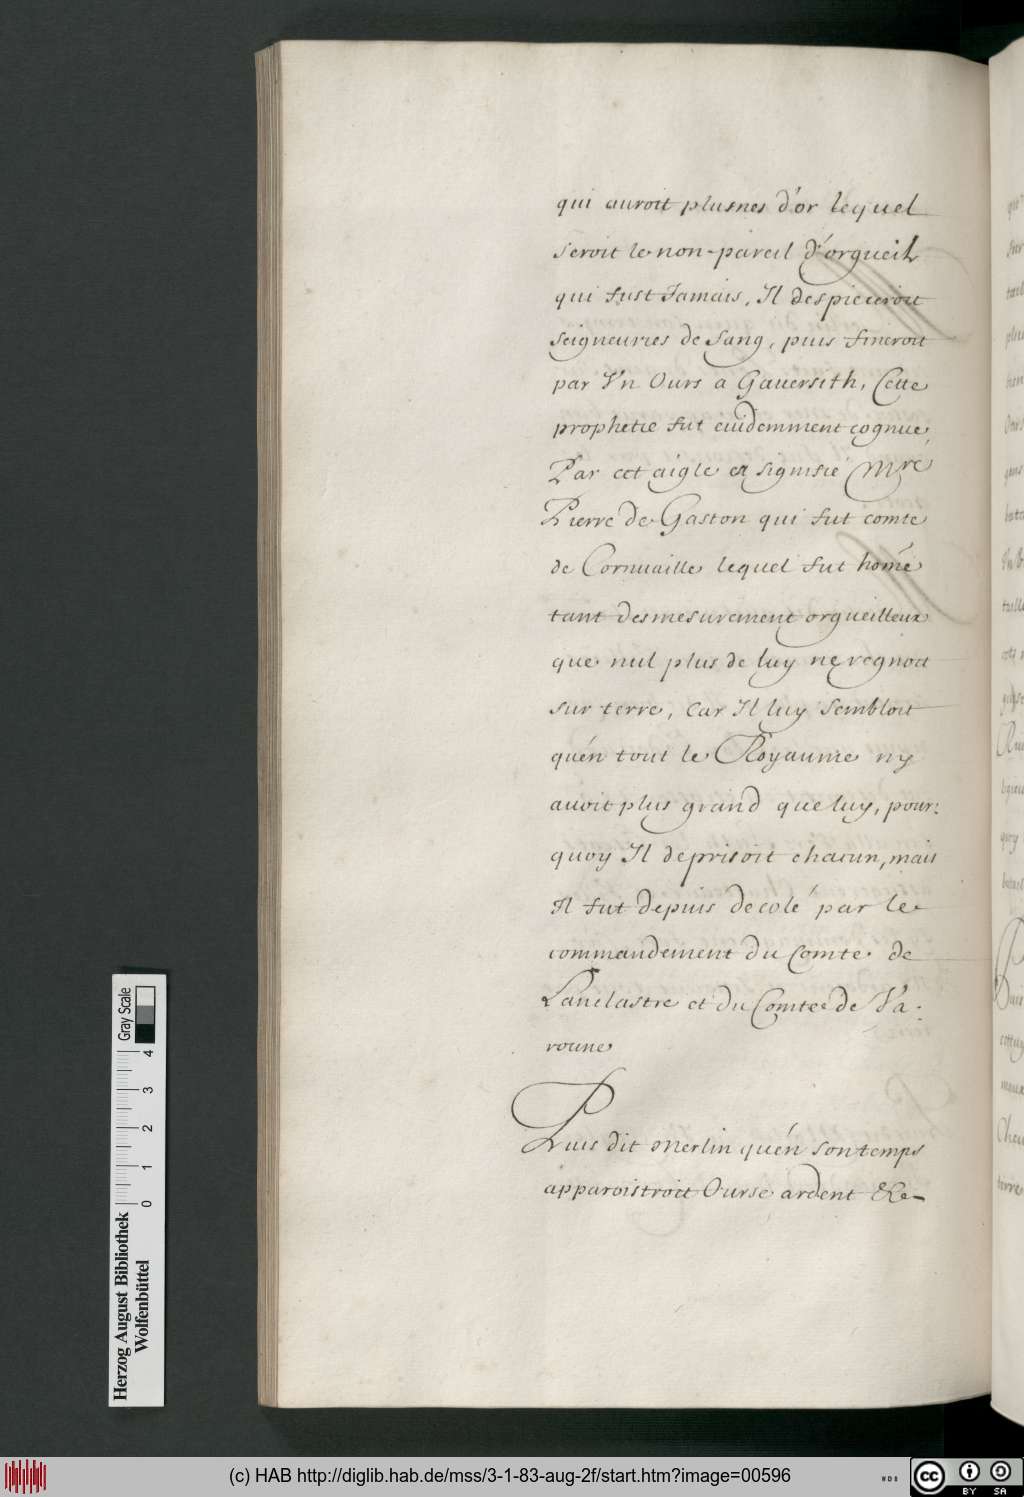 qui auroit plusnes d'or lequel
seroit le non-pareil d'orgueil
qui fust Jamais, Il despiceroit
seigneuries de sang, puis fineroit
par Vn Ours a Gauersith, Cette
prophetie fut euidemment cognue,
Par cet aigle est signifié Mre
Pierre de Gaston qui fut comte
de Cornuaille lequel fut home
tant desmesurement orgueilleux
que nul plus de luy ne regnoit
sur terre, Car Il luy Sembloit
qu'en tout le Royaume ny
auoit plus grand que luy, pour:
quoy Il deprisoit chacun, mais
Il fut depuis decolé par le
commandement du Comte de
Lanclastre et du Comte de Va:
roune
Puis dit Merlin qu'en son temps
apparoistroit Ourse ardent & le-
Herzog August Bibliothek
Wolfenbüttel
0 1 2 3 4
Gray Scale
(c) HAB http://diglib.hab.de/mss/3-1-83-aug-2f/start.htm?image=00596
WDB
cc BY SA